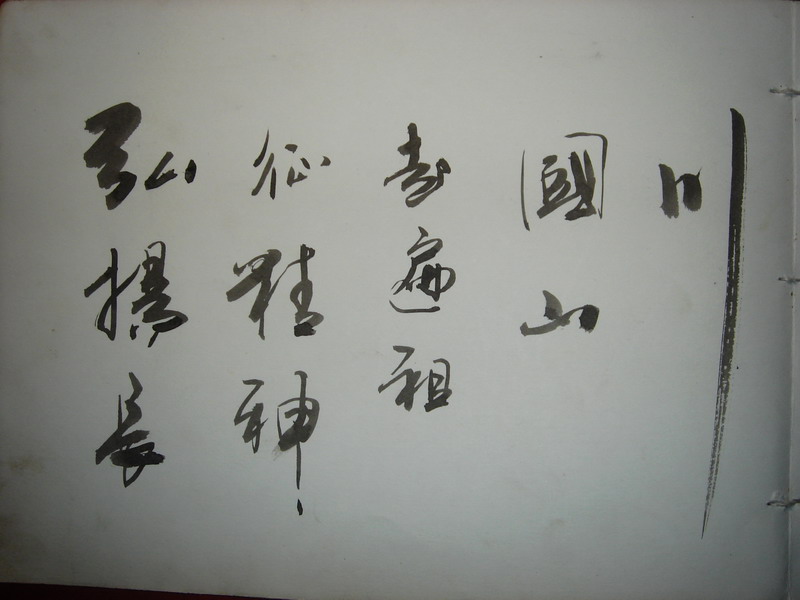 弘揚長
征精神
遍祖
國山
川